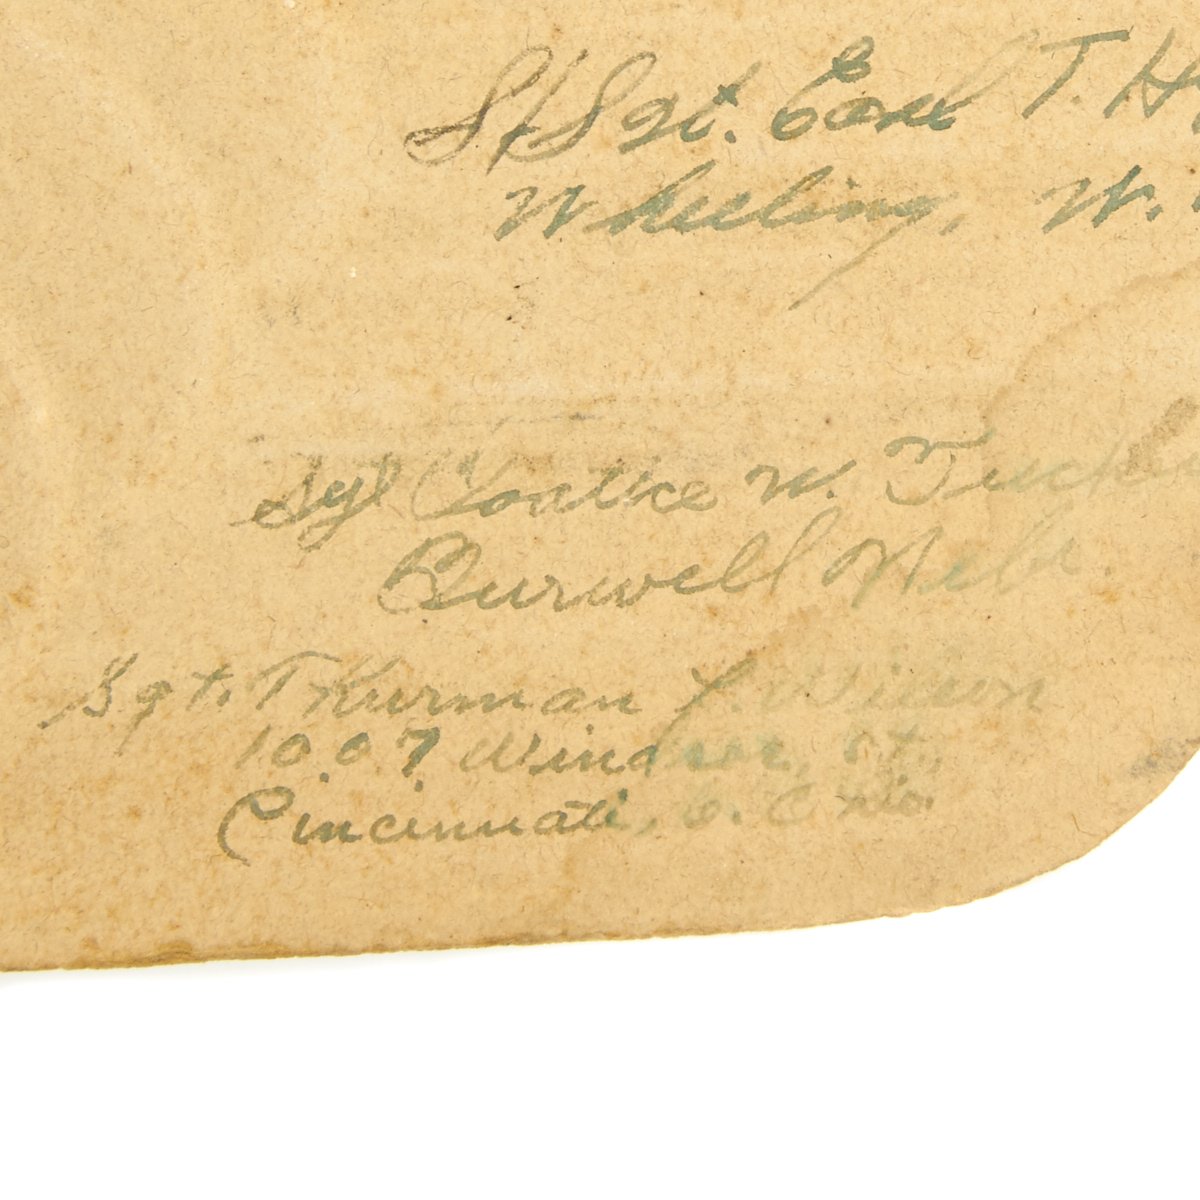 S/Sgt. Earl T. H
Wheeling, W.
Sgt W. Tuck
Burwell Nebr.
Sgt. Thurman J. Wilson
1007 Windsor, St.
Cincinnati, 6. Ohio